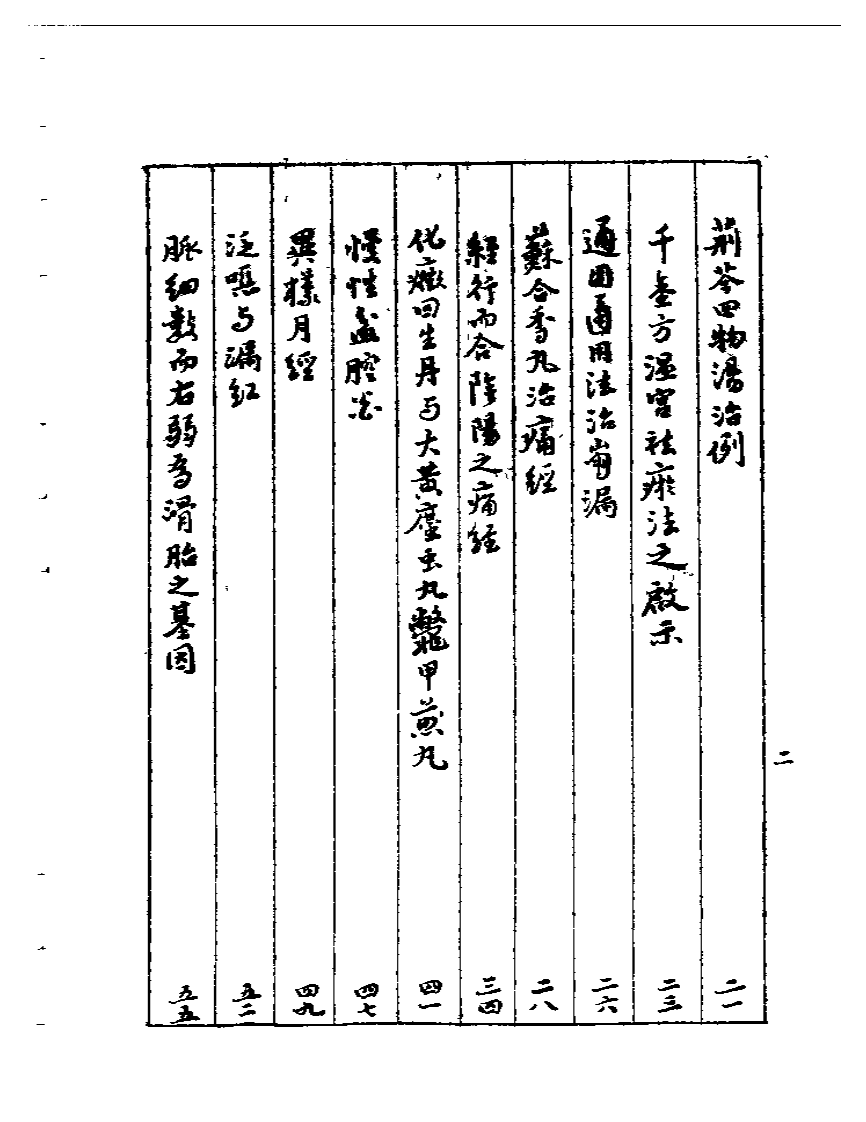 荊芩四物湯治例 二一
千金方温宫祛瘀法之啟示 二三
通因通用法治崩漏 二六
蘇合香丸治痛經 二八
經行而合陰陽之痛經 三四
化癥回生丹与大黄䗪虫丸鱉甲煎丸 四一
慢性盆腔炎 四七
異樣月經 四九
泛噁与漏紅 五二
脈細數而右弱為滑胎之基因 五五
二